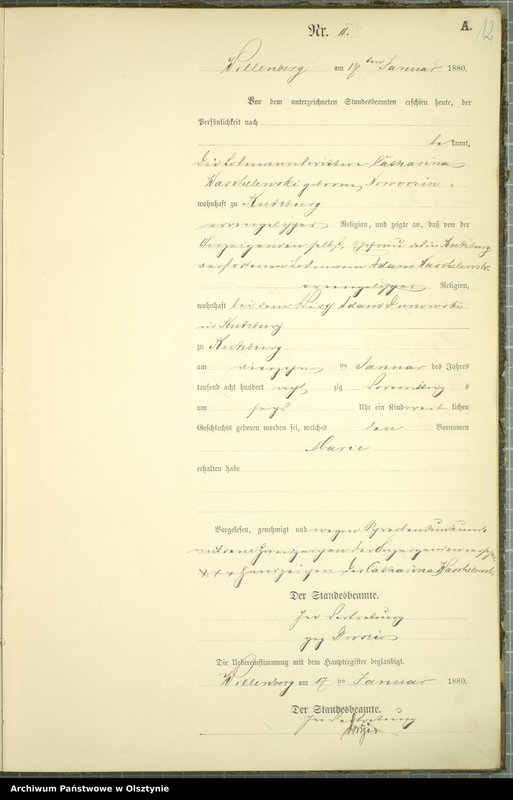 A.
12
Nr. 11.
Willenberg am 17 ten Januar 1880.
Vor dem unterzeichneten Standesbeamten erschien heute, der
Persönlichkeit nach
be kannt,
die Losmannswittwe Catharina
Kaschelewski geborene
wohnhaft zu Kutzburg
evangelischer Religion, und zeigte an, daß von der
Anzeigenden selbst, Ehefrau des in Kutzburg
verstorbenen Losmann Adam Kaschelewski
evangelischer Religion,
wohnhaft bei dem Wirth Adam
in Kutzburg
zu Kutzburg
am vierzehn ten Januar des Jahres
tausend acht hundert acht zig Vormittags
um sechs Uhr ein Kind weib lichen
Geschlechts geboren worden sei, welches den Vornamen
Marie
erhalten habe
Vorgelesen, genehmigt und wegen Schreibensunkunde
mit den Handzeichen der Anzeigenden versehen
+++ Handzeichen der Catharina Kaschelewski
Der Standesbeamte.
In Vertretung
gez
Die Uebereinstimmung mit dem Hauptregister beglaubigt.
Willenberg am 17 ten Januar 1880.
Der Standesbeamte.
In Vertretung
Archiwum Państwowe w Olsztynie